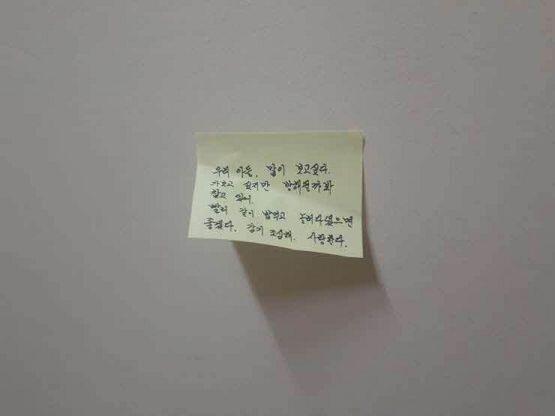 우리 아들, 많이 보고싶다.
가보고 싶지만 방해될까봐
참고 있어.
빨리 같이 밥먹고 놀러다녔으면
좋겠다. 감기 조심해. 사랑한다.